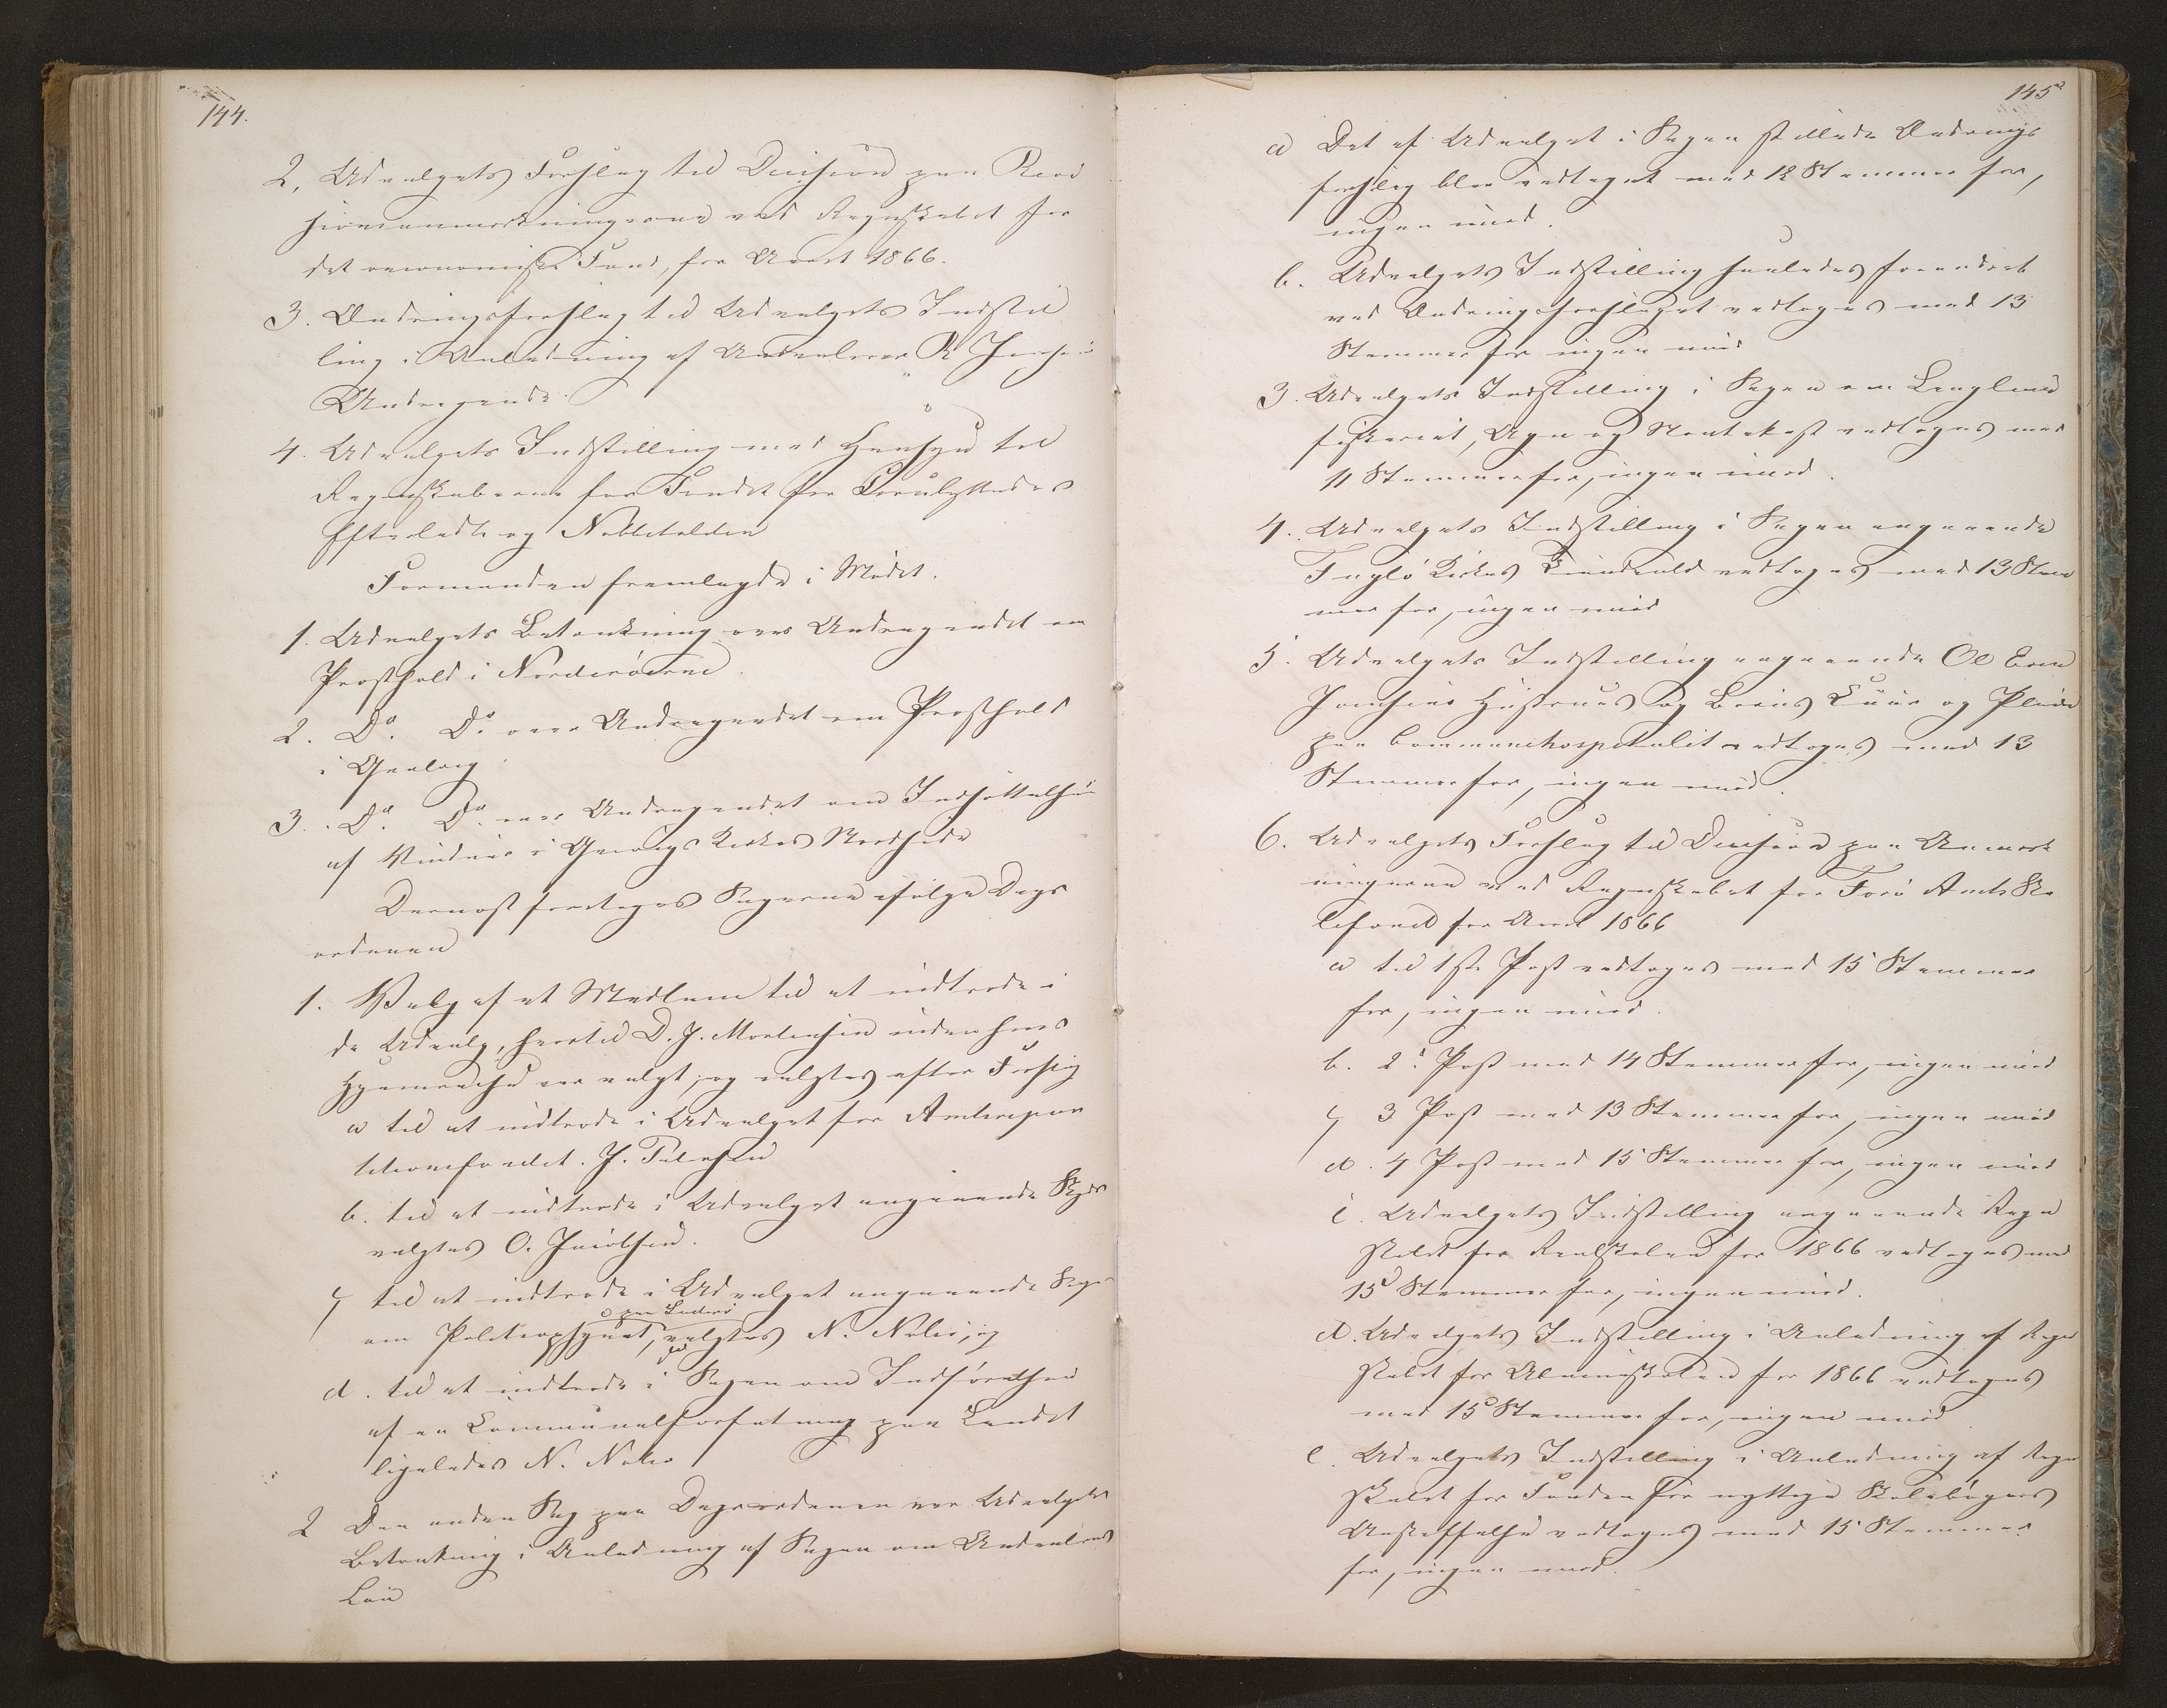 144.
2, Udvalgets Forslag til Decision paa Revi
sionsanmærkningerne ved Regnskabet for
det oeconomiske Fond, for Aaret 1866.
3. Ændringsforslag til Udvalgets Indstil
ling i Anledning af Underlærer R. Jensens
Andragende.
4. Udvalgets Indstilling med Hensyn til
Regnskaberne for Fondet for Forulykkedes
Efterladte og Nebbetolden
Formanden fremlagde i Mødet.
1. Udvalgets Betænkning over Andragendet om
Præsthold i Norderøerne.
2. Do. Do. over Andragendet om Præsthold
i Qvalvig.
3. Do. Do. over Andragendet om Indsættelsen
af Vinduer i Qvivigs Kirkes Nordside
Dernæst foretoges Sagerne ifølge Dags
ordenen
1. Valg af et Medlem til at indtræde i
de Udvalg, hvortil D. J. Mortensen inden hans
Hjemreise var valgt; og valgtes efter Forslag
a til at indtræde i Udvalget for Amtsrepar
titionsfondet. J. Petersen
b. til at indtræde i Udvalget angaaende Skyds
valgtes O. Jacobsen.
c til at indtræde i Udvalget angaaende Sagen
paa Suderø
om Politieopsynet, valgtes N. Nolsø, og
d. til at indtræde i Sagen om Indførelsen
af en Communalforfatning paa Landet
ligeledes N. Nolsø
2 Den anden Sag paa Dagsordenen var Udvalgets
Betænkning i Anledning af Sagen om
Løn
145
a Det af Udvalget i Sagen stillede Ændrings
forslag blev vedtaget med 12 Stemmer for,
ingen imod.
b. Udvalgets Indstilling saaledes forandret
ved Ændringsforslaget vedtoges med 13
Stemmer for ingen imod
3. Udvalgets Indstilling i Sagen om Langline
fiskeriet, Agn og Nontekast vedtoges med
11 Stemmer for, ingen imod.
4. Udvalgets Indstilling i Sagen angaaende
Fuglø Kirkes vedtoges med 13 Stem
mer for, ingen imod
5. Udvalgets Indstilling angaaende Ole
Joensens Hustrues og Barns Kuur og Pleie
paa Communehospitalet vedtoges med 13
Stemmer for, ingen imod.
6. Udvalgets Forslag til Decision paa Anmærk
ningerne ved Regnskabet for Færø Amts Sko
lefond for Aaret 1866
a til 1ste Post vedtoges med 15 Stemmer
for, ingen imod.
b. 2. Post med 14 Stemmer for, ingen imod
c 3 Post med 13 Stemmer for, ingen imod
d. 4 Post med 15 Stemmer for, ingen imod
c. Udvalgets Indstilling angaaende Regn
skabet for Realskolen for 1866 vedtoges med
15 Stemmer for, ingen imod.
d. Udvalgets Indstilling i Anledning af Regn
skabet for Almueskolen for 1866 vedtoges
med 15 Stemmer for, ingen imod
e. Udvalgets Indstilling i Anledning af Regn
skabet for Fonden for nyttige Skolebøgers
Anskaffelse vedtoges med 15 Stemmer
for, ingen imod.